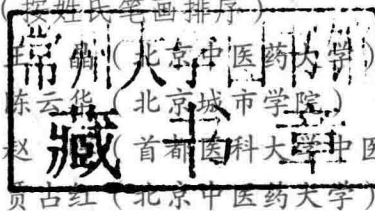 （按姓氏笔画排序）
王 晶（北京中医药大学）
陈云华（北京城市学院）
赵 （首都医科大学中医
贾占红（北京中医药大学）
常州大学图书馆
藏书章